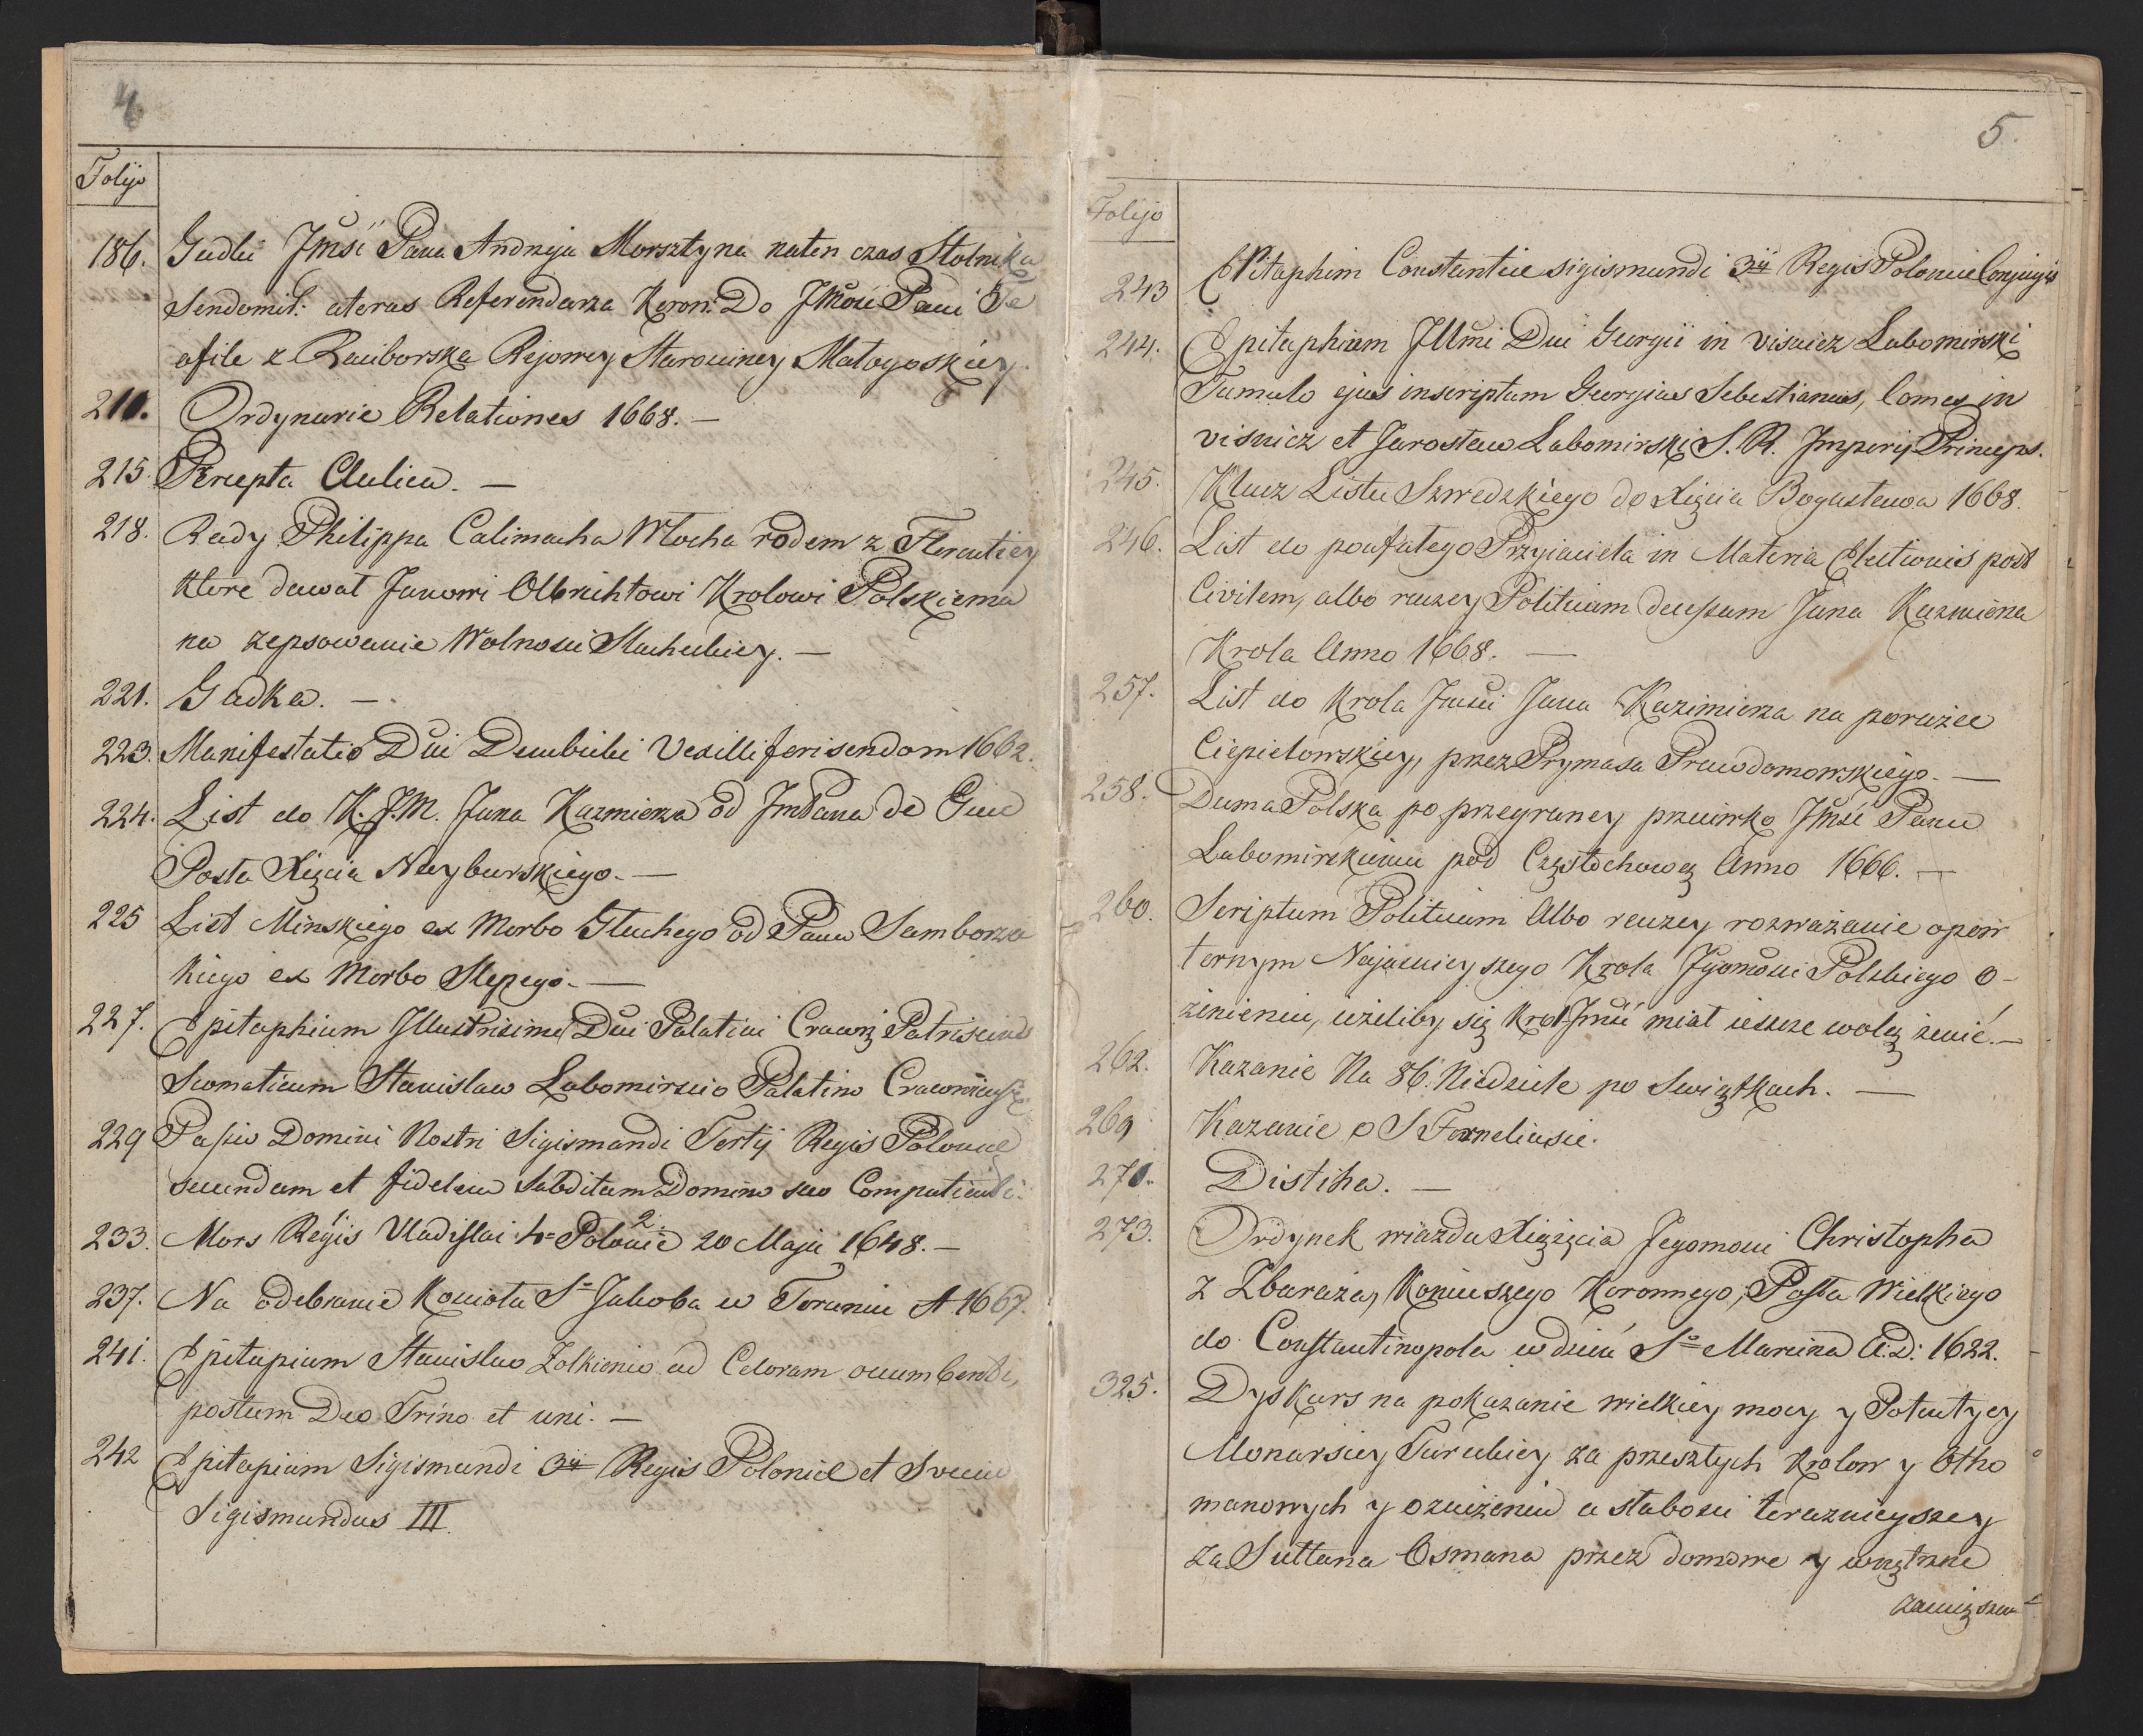 4
Folijo
186. Gadki Jmsći Pana Andrzeja Morsztyna naten czas Stolnika
Sendomil: ateras Referendarza Koron: Do Jmości Pani Te
ofile z Raciborska Rejowey Starościney Małogoskiey.
210. Ordynarie Relationes 1668. —
215. Percepta Aulica. —
218. Rady Philippa Calimacha Włocha rodem z Florentiey
które dawał Janowi Olbrichtowi Krolowi Polskiemu
na zepsowanie Wolnosci Slacheckiey. —
221. Gadka. —
223. Manifestatio Dni Dembicki Vexilliferi sendom 1662.
224. List do K. J. M. Jana Kazmierza od JmPana de Guie
Posła Xięcia Neyburskiego. —
225 List Minskiego ex Morbo Głuchego od Pana Samborza
kiego ex Morbo Slepego. —
227. Epitaphium Illustrisimi Dni Palatini Cracovij Patriscius
Stanislaw Lubomirscio Palatino
229 Passio Domini Nostri Sigismandi Tertij Regis Poloniæ
secundum et fidelem Subditum Domino suo Compatienti.
233. Mors Regis Vladislai 4 Polonie 20 Maja 1648. —
237. Na odebranie Kosciota S Jakoba w Toruniu A 1667.
241. Epitapium Stanislao Zolkienio ad Celoram ocumbenti,
postum Deo Trino et uni. —
242 Epitapium Sigismundi 3ii Regis Poloniæ et Svecie
Sigismundus III.
5.
Folijo
243 EPitaphim Constantie sigismundi 3ii Regis Poloniæ Conjugis
244. Epitaphium Jllmi Dni Georgii in visnicz Lubomirski
Tumulo ejus inscriptum Georgius Sebestianus, Comes in
visnicz et Jarosław Lubomirski S. R. Jmperij Princeps.
245. Klucz Listu Szwedzkiego do Xięcia Bogusława 1668.
246. List do poufałego Przyiaciela in Materia Electionis post
Civilem, albo raczey Politicum decessum Jana Kazmierza
Krola Anno 1668. —
257. List do Krola Jmści Jana Kazimierza na porażce
Ciepielowskiey, przez Prymasa Prawdomowskiego. —
258. Duma Polska po przegraney przeciwko Jmść Panu
Lubomirskiemu pod Częstochową Anno 1666. —
260. Scriptum Politicum Albo raczey rozważanie opow
tornym Najasnieyszego Krola Jgomosci Polskiego o-
żenieniu, ieżeliby się Krol Jmść miał ieszcze wolą żenić. —
262. Kazanie Na 86. Niedziele po Swiątkach. —
269 Kazanie o S Forneliusie.
270. Distiha. —
273. Ordynek wiazdu Xiążęcia Jegomosci Christopha
z Zbaraża, Koniuszego Koronnego, Posła Wielkiego
do Constantinopola w dzień S Marcina A: D: 1622.
325. Dyskurs na pokazanie wielkiey mocy y Potentycy
Monarsiey Tureckiey za przeszłych Krolow y Otho
manowych y ozniżeniu a słabosci teraznieyszey
za Sułtana Osmana przez domowe y wnętrzne